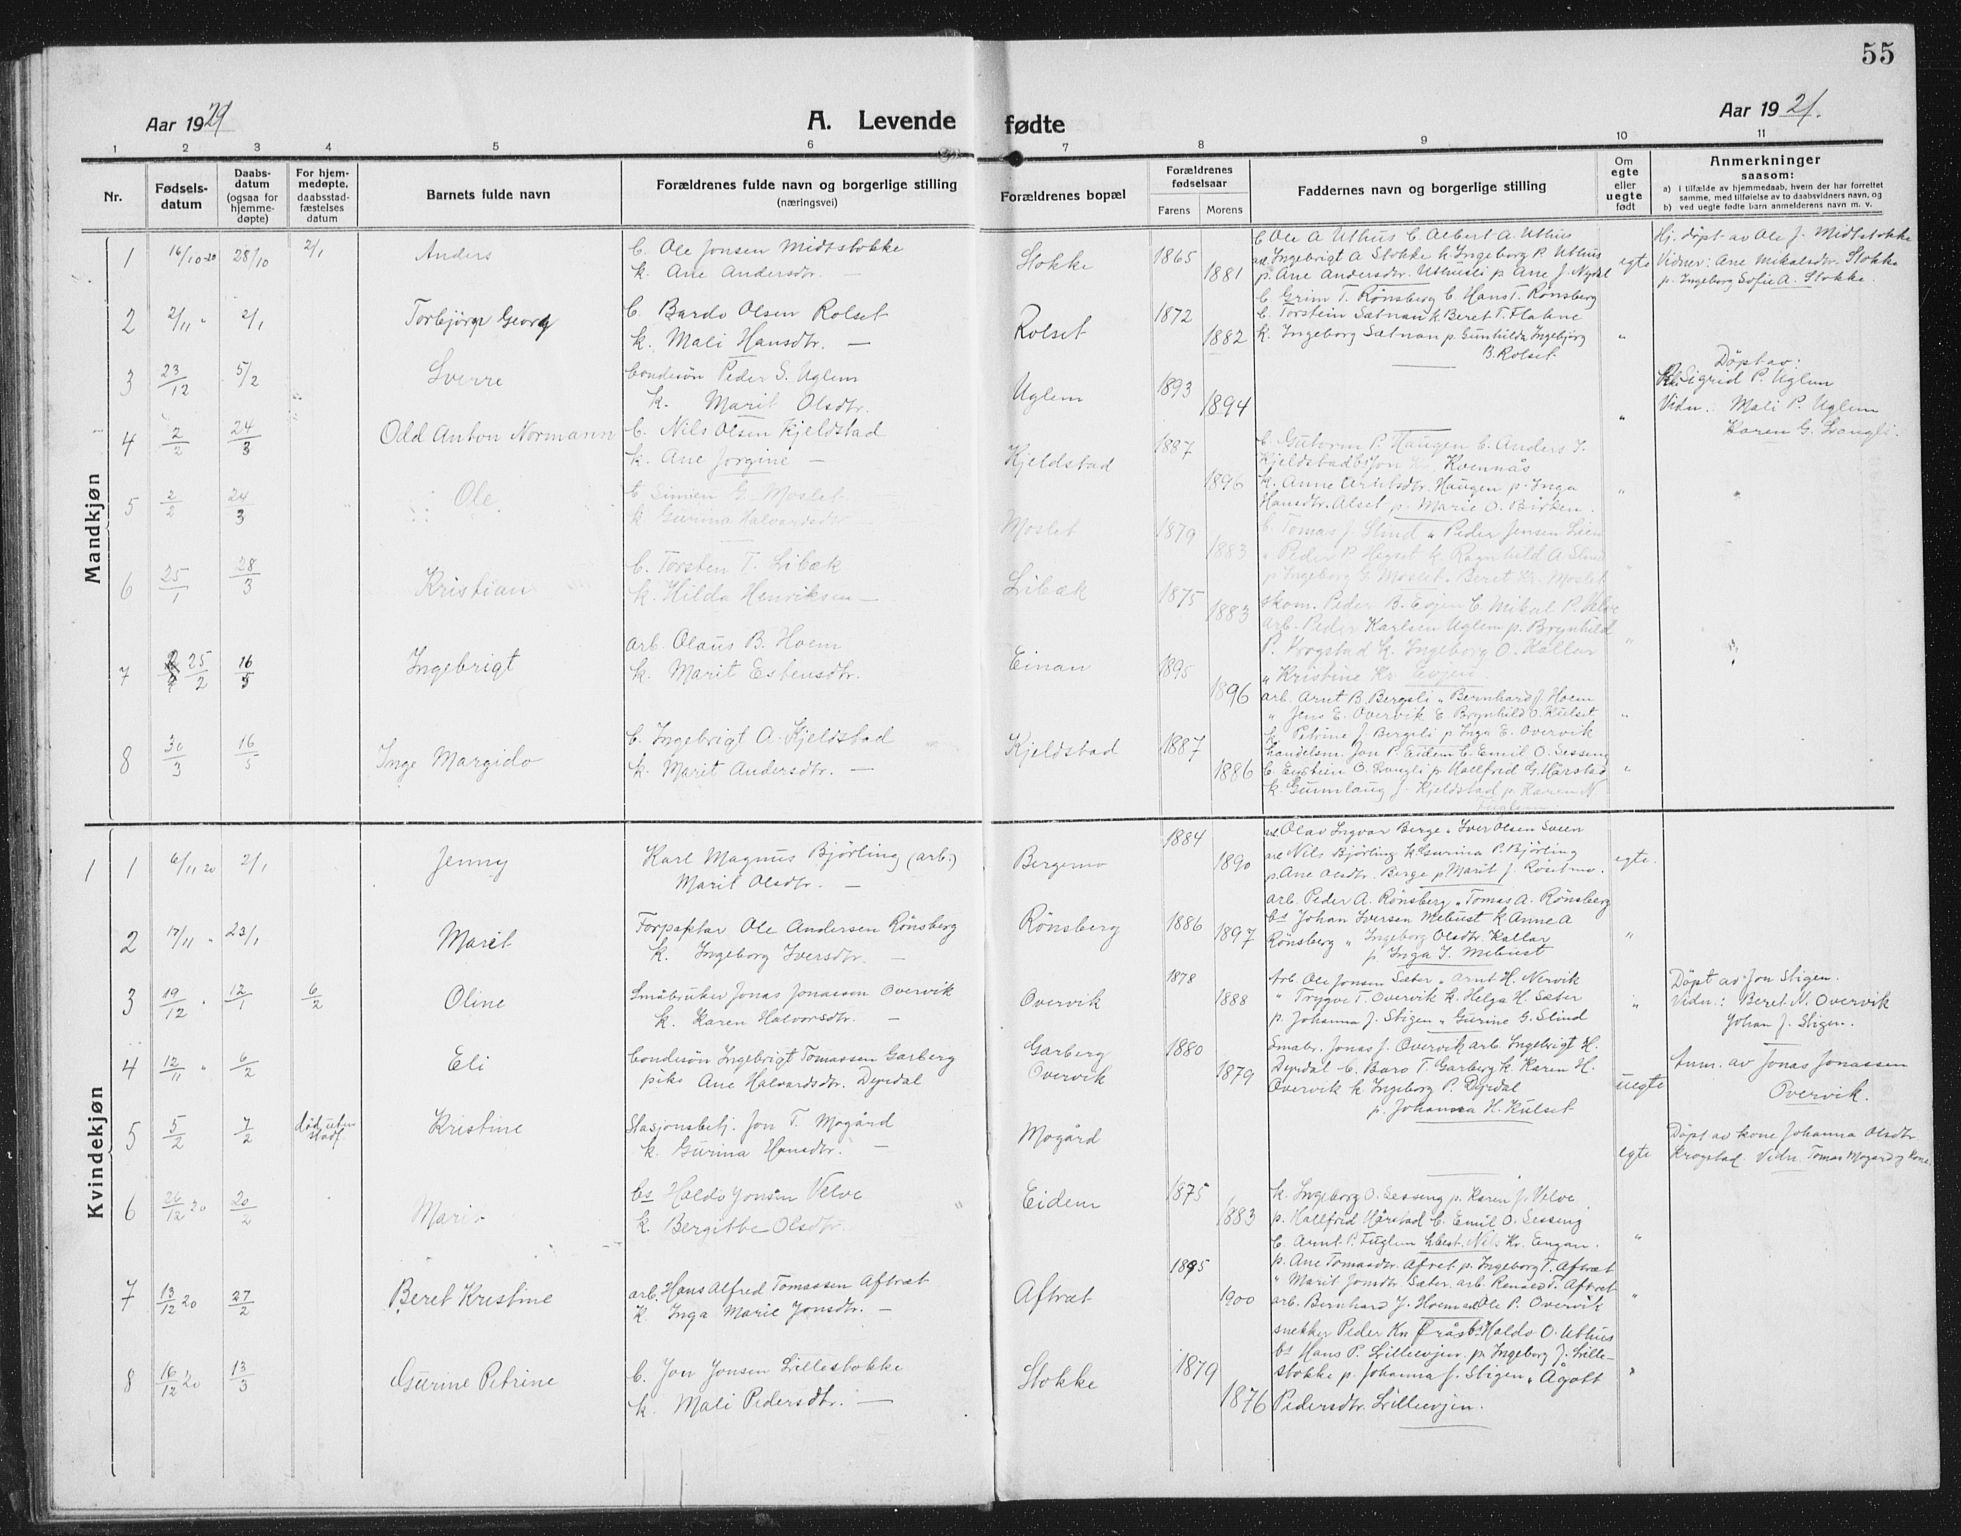 55
Aar 1921
A. Levende fødte
Aar 1921.
1 2 3 4 5 6 7 8 9 10 11
Nr.
Fødsels-
datum
Daabs-
datum
(ogsaa for
hjemme-
døpte)
For hjem-
medøpte,
daabsstad-
fæstelses
datum
Barnets fulde navn
Forældrenes fulde navn og borgerlige stilling
(næringsvei)
Forældrenes bopæl
Forældrenes
fødselsaar
Farens Morens
Faddernes navn og borgerlige stilling
Om
egte
eller
uegte
født
Anmerkninger
saasom:
a) i tilfælde av hjemmedaab, hvem der har forrettet
samme, med tilføielse av to daabsvidners navn, og
b) ved uegte fødte barn anmelderens navn m. v.
Mandkjøn
1 16/10-20 28/10 2/1 Anders
G. Ole Jonsen Midtstokke
k. Ane Andersdtr. —
Stokke 1865 1881
G. Ole A Uthus G. Albert A. Uthus
Ingebrigt A Stokke k Ingeborg P. Uthus
p. Ane Andersdtr. Uthusli p Ane J. Nydal
egte
Hj. døpt av Ole J. Midtstokke
Vidner: Ane Mikalsdtr. Stokke
p. Ingeborg Sofie A. Stokke.
2 2/11 " 2/1 Torbjørn Georg
G. Bardo Olsen Rolset
k. Mali Hansdtr. —
Rolset 1872 1882
G. Grim T. Rønsberg G. Hans T. Rønsberg
G. Torstein Sætnan k Beret T. Flakne
k. Ingeborg Sætnan p Gunhilda Ingebjørg
B. Rolset
"
3 23/12 5/2 Sverre
Gardssøn Peder S. Uglem
k. Marit Olsdtr.
Uglem 1893 1894
—
"
Døpt av:
Sigrid P. Uglem
Vidn. Mali P. Uglem
Karen G. Langli.
4 2/2 24/3 Odd Anton Normann
G. Nils Olsen Kjeldstad
k. Ane Jorgine —
Kjeldstad 1887 1896
G. Gutorm P. Haugen G. Anders J.
Kjeldstad Jon K. Kvennås
k. Anne Arntsdtr. Haugen p. Inga
Hansdtr. Alset p. Marie O. Birken.
"
5 2/2 24/3 Ole
G. Simen G. Moslet
k Gurina Halvardsdtr
Moslet 1879 1883
G. Tomas J. Slind " Peder Jensen Lien
" Peder P. Hegset k. Ragnhild A Slind
p Ingeborg G. Moslet. Beret Kr. Moslet
"
6 25/1 28/3 Kristian
G. Torsten T. Libæk
k. Hilda Henriksen —
Libæk 1875 1883
skom. Peder B. Evjen G. Mikal P. Velve
arb. Peder Karlsen Uglem p. Brynhild
P. Krogstad k. Ingeborg O. Kallar
" Kristine Kr. Evjen.
"
7 25/2 16/5 Ingebrigt
arb. Olaus B. Hoem
k. Marit Estensdtr.
Einan 1895 1896
arb. Arnt B. Bergsli " Bernhard J. Hoem
" Jens E. Overvik E Brynhild O. Kulset
k. Petrine J. Bergsli p Inga E. Overvik
"
8 30/3 16/5 Inge Margido
G. Ingebrigt A. Kjeldstad
k. Marit Andersdtr. —
Kjeldstad 1887 1886
handelsm. Jon P. Eidem G. Emil O. Sessing
G. Eystein O. Langli p Hallfrid G. Hårstad
k. Gunnlaug J. Kjeldstad p. Karen N
Fuglem
"
Kvindekjøn
1 1 6/11 20 2/1 Jenny
Karl Magnus Bjørling (arb.)
Marit Olsdtr. —
Bergemo 1884 1890
Olav Ingvar Berge " Iver Olsen Sveen
Nils Bjørling k Gurina P. Bjørling
p. Ane Olsdtr. Berge p Marit J. Rosetmo.
egte.
2 17/11 " 23/1 Marit
Forpaktar Ole Andersen Rønsberg
k. Ingeborg Iversdtr. —
Rønsberg 1886 1897
arb. Peder A. Rønsberg " Tomas A. Rønsberg
bs Johan Iversen Mebust k Anne A
Rønsberg " Ingeborg Olsdtr. Kallar
p Inga I. Mebust
"
3 19/12 " 12/1 6/2 Oline
Småbruker Jonas Jonassen Overvik
k. Karen Halvorsdtr. —
Overvik 1878 1888
Arb Ole Jonsen Sæter " Arnt H. Nervik
" Trygve T. Overvik k. Helga H. Sæter
p. Johanna J. Stigen " Gurine G. Slind
"
Døpt av Jon Stigen.
Vidn.: Beret N. Overvik
Johan J. Stigen.
4 12/11 " 6/2 Eli
Gardssøn Ingebrigt Tomassen Garberg
pike Ane Halvardsdtr. Dyrdal
Garberg
Overvik
1880 1879
Småbr. Jonas J. Overvik arb. Ingebrigt H.
Dyrdal G. Baro T. Garberg k. Karen H.
Overvik k Ingeborg P. Dyrdal
p. Johanna H. Kulset
uegte
Anm. av Jonas Jonassen
Overvik.
5 5/2 7/2 død uten stadf. Kristine
Stasjonsbetj. Jon T. Mogård
k. Gurina Hansdtr. —
Mogård
—
egte
Døpt av kone Johanna Olsdtr
Krogstad Vidn. Tomas Mogard og Kone
6 26/12 20 20/2 Marie
bs Haldo Jonsen Velve
k. Bergitte Olsdtr.
Eidem 1875 1883
k. Ingeborg O. Sessing p. Karen J. Velve
p. Hallfrid Hårstad G. Emil O. Sessing
G. Arnt P. Fuglem Nils Kr. Engan.
"
7 13/12 20 27/2 Beret Kristine
arb. Hans Alfred Tomassen Aftret
k. Inga Marie Jonsdtr. —
Aftræt 1895 1900
p. Ane Tomasdtr. Aftret p. Ingeborg T. Aftræt
" Marit Jonsdtr. Sæter. arb. T. Aftret
arb. Bernhard J. Hoem Ole P. Overvik
"
8 16/12 20 13/3 Gurine Petrine
G. Jon Jonsen Lillestokke
k. Mali Pedersdtr. —
Stokke 1879 1876
snekker Peder Kn Haldo O. Uthus
bs Hans P. Lilleevjen p Ingeborg J. Lille-
stokke p. Johanna J. Stigen " Agott
Pedersdtr. Lilleevjen.
"